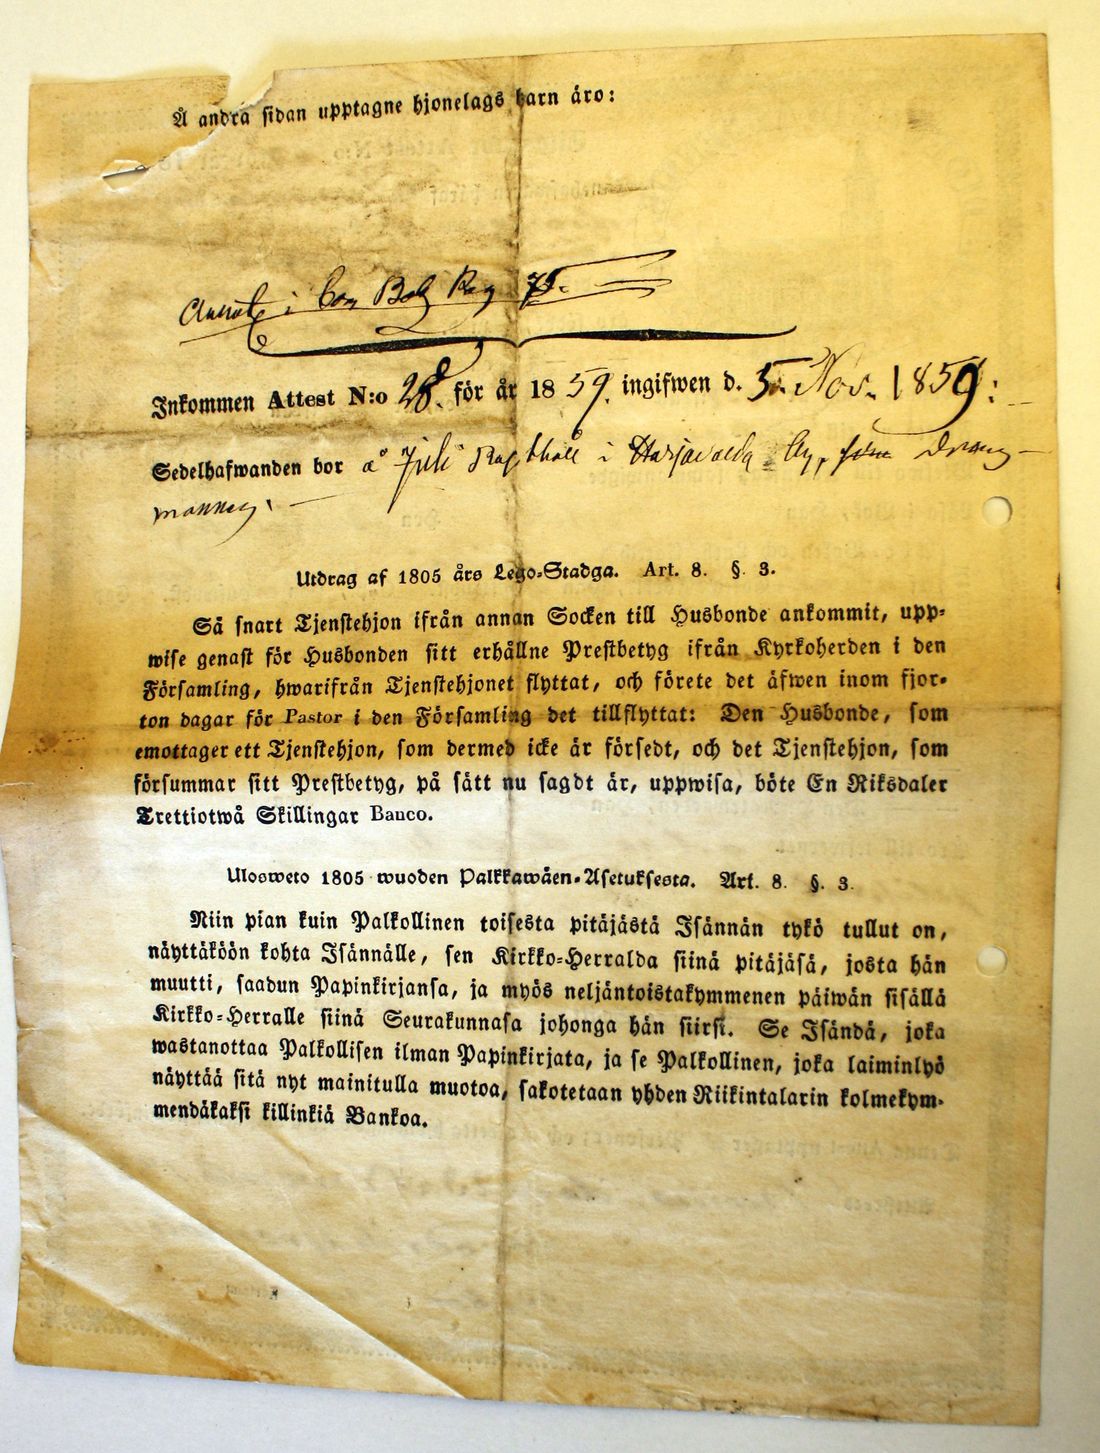 Å andra sidan upptagne hjonelags barn äro:
i Com Bok Pag 75.
Inkommen Attest N:o 28. för år 1859. ingifwen d. 5. Nov. 1859:
Sedelhafwanden bor å Juli i Harjavalda By, som Dreng-
mannen.
Utdrag af 1805 års Lego-Stadga. Art. 8. §. 3.
Så snart Tjenstehjon ifrån annan Socken till Husbonde ankommit, upp-
wise genast för Husbonden sitt erhållne Prestbetyg ifrån Kyrkoherden i den
Församling, hwarifrån Tjenstehjonet flyttat, och förete det äfwen inom fjor-
ton dagar för Pastor i den Församling det tillflyttat: Den Husbonde, som
emottager ett Tjenstehjon, som dermed icke är försedt, och det Tjenstehjon, som
försummar sitt Prestbetyg, på sätt nu sagdt är, uppwisa, böte En Riksdaler
Trettiotwå Skillingar Banco.
Ulosweto 1805 wuoden Palkkawäen-Asetuksesta. Art. 8. §. 3.
Niin pian kuin Palkollinen toisesta pitäjästä Isännän tykö tullut on,
näyttäköön kohta Isännälle, sen Kirkko-Herralda siinä pitäjäsä, josta hän
muutti, saadun Papinkirjansa, ja myös neljäntoistakymmenen päiwän sisällä
Kirkko-Herralle siinä Seurakunnasa johonga hän siirsi. Se Isändä, joka
wastanottaa Palkollisen ilman Papinkirjata, ja se Palkollinen, joka laiminlyö
näyttää sitä nyt mainitulla muotoa, sakotetaan yhden Riikintalarin kolmekym-
mendäkaksi killinkiä Bankoa.